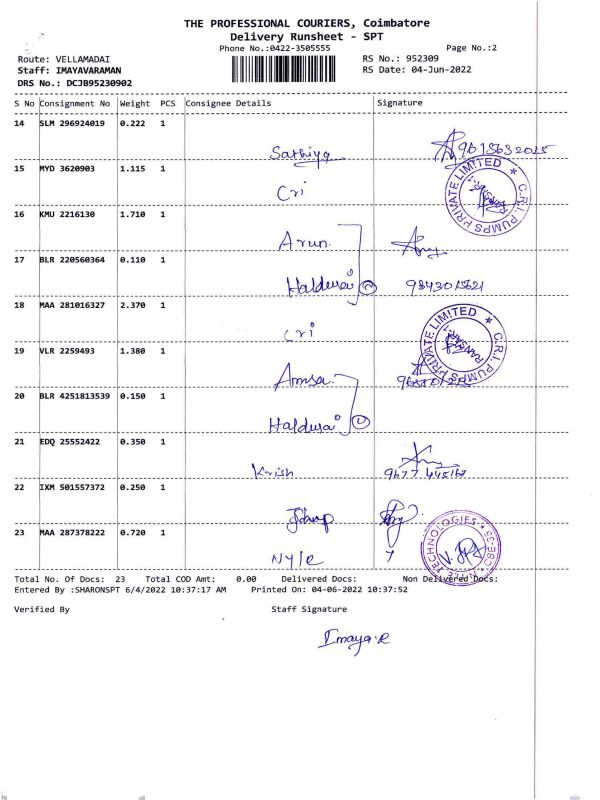 THE PROFESSIONAL COURIERS, Coimbatore
Delivery Runsheet - SPT
Phone No.:0422-3505555 Page No.:2
Route: VELLAMADAI RS No.: 952309
Staff: IMAYAVARAMAN RS Date: 04-Jun-2022
DRS No.: DCJB95230902
S No Consignment No Weight PCS Consignee Details Signature
14 SLM 296924019 0.222 1
Sathiya
15 MYD 3620903 1.115 1
Cri
C.R.I. PUMPS PRIVATE LIMITED
16 KMU 2216130 1.710 1
Arun
17 BLR 220560364 0.110 1
18 MAA 281016327 2.370 1
Cri
C.R.I. PUMPS PRIVATE LIMITED
19 VLR 2259493 1.380 1
20 BLR 4251813539 0.150 1
21 EDQ 25552422 0.350 1
Krish
22 IXM 501557372 0.250 1
23 MAA 287378222 0.720 1
Nyle
TECHNOLOGIES
Total No. Of Docs: 23 Total COD Amt: 0.00 Delivered Docs: Non Delivered Docs:
Entered By :SHARONSPT 6/4/2022 10:37:17 AM Printed On: 04-06-2022 10:37:52
Verified By Staff Signature
Imaya.R